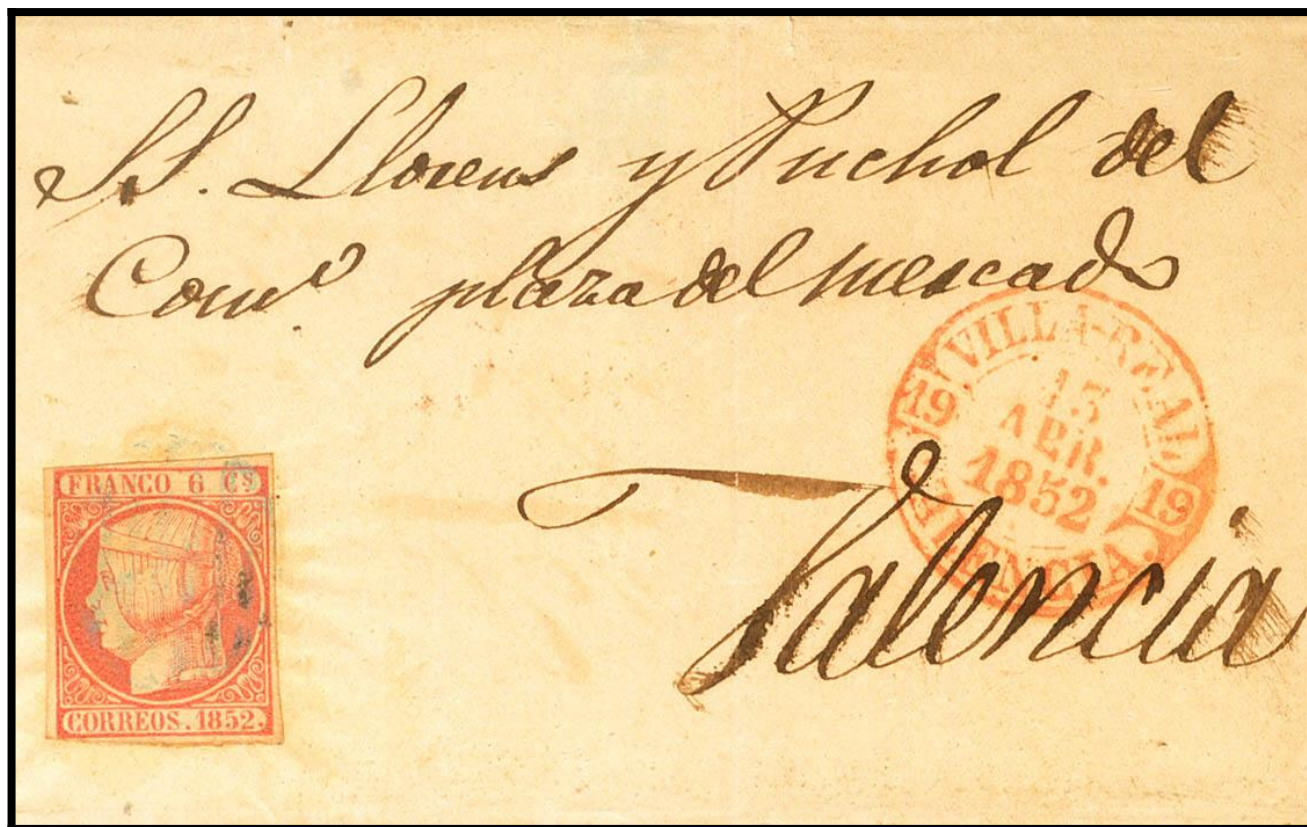 SS. Llorens y Puchol del
Comº. plaza del mercado
VILLA-REAL
19
13
ABR.
1852
19
VALENCIA.
FRANCO 6 Cs
CORREOS. 1852.
Valencia